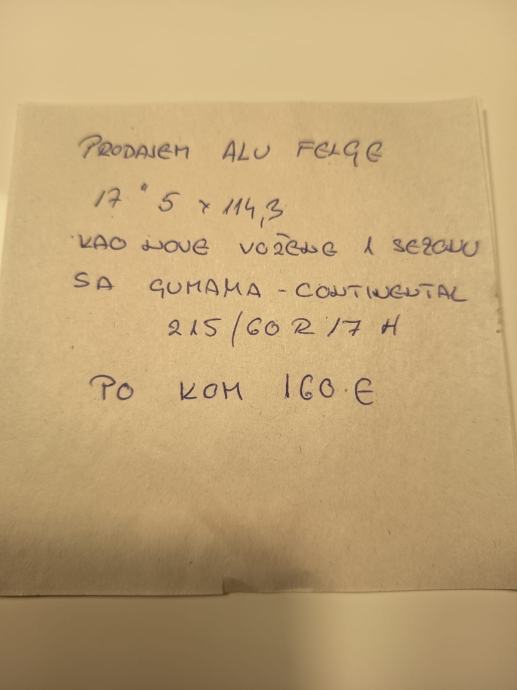 PRODAJEM ALU FELGE
17" 5 x 114,3
KAO NOVE VOŽENE 1 SEZONU
SA GUMAMA - CONTINENTAL
215/60 R 17 H
PO KOM 160.€